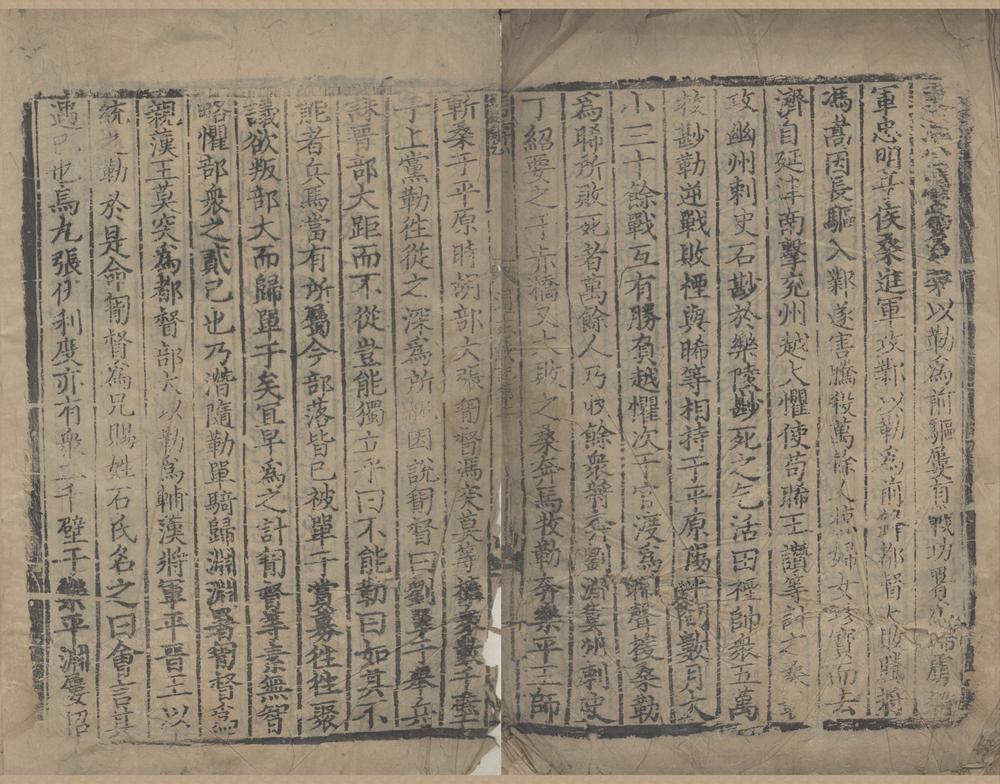 桑以勒為前驅屢有戰功署為掃虜將
軍忠明亭侯桑進軍攻鄴以勒為前鋒都督大敗騰將
馮嵩因長驅入鄴遂害騰殺萬餘人掠婦女珍寶而去
濟自延津南擊兗州越大懼使苟晞王讚等討之桑
攻幽州刺史石尠於樂陵尠死之乞活田禋帥衆五萬
救尠勒逆戰敗禋與晞等相持于平原陽平間數月大
小三十餘戰互有勝負越懼次于官渡為晞聲援桑勒
為晞所敗死者萬餘人乃收餘衆將奔劉淵冀州刺史
丁紹要之于赤橋又大敗之桑奔馬牧勒奔樂平王師
斬桑于平原時胡部大張㔨督馮莫突等擁衆數千壁
于上黨勒往從之深為所 因說㔨督曰劉單于舉兵
誅晉部大距而不從豈能獨立乎曰不能勒曰如其不
能者兵馬當有所屬今部落皆已被單于賞募往往聚
議欲叛部大而歸單于矣宜早為之計㔨督等素無智
略懼部衆之貳己也乃潛隨勒單騎歸淵淵署㔨督為
親漢王莫突為都督部大以勒為輔漢將軍平晉王以
統之勒於是命㔨督為兄賜姓石氏名之曰會言其
遇己也烏丸張伏利度亦有衆二千壁于樂平淵屢招